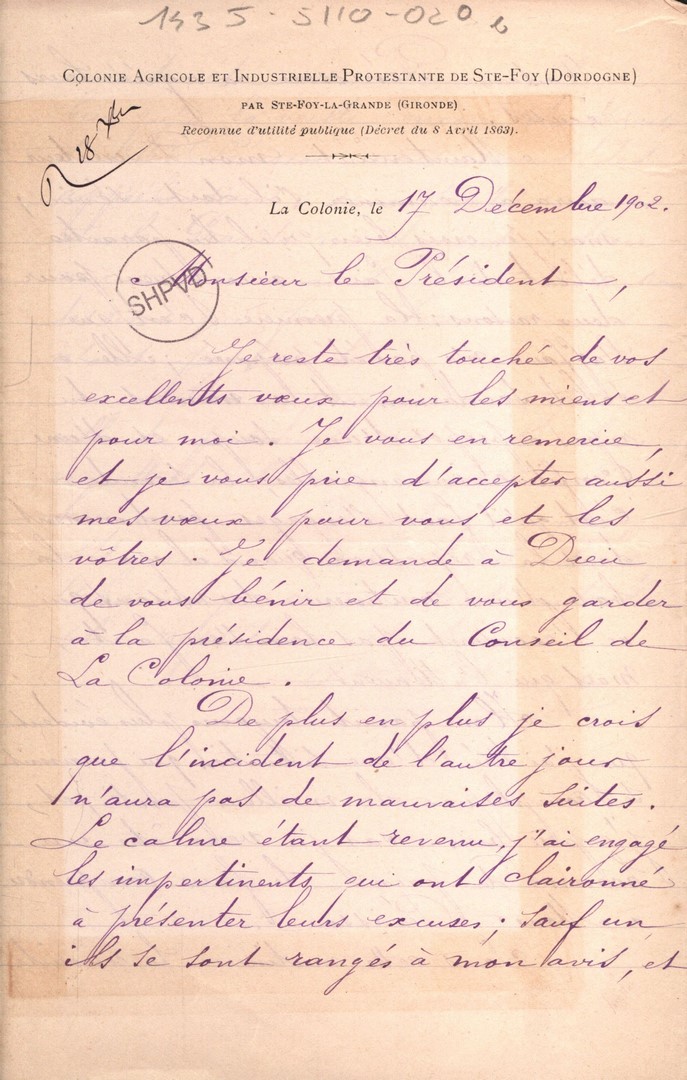 1935-5110-020
COLONIE AGRICOLE ET INDUSTRIELLE PROTESTANTE DE STE-FOY (DORDOGNE)
PAR STE-FOY-LA-GRANDE (GIRONDE)
Reconnue d'utilité publique (Décret du 8 Avril 1863).
R 28 Xbre
La Colonie, le 17 Décembre 1902.
SHPVD
Monsieur le Président,
Je reste très touché de vos
excellents vœux pour les miens et
pour moi. Je vous en remercie,
et je vous prie d'accepter aussi
mes vœux pour vous et les
vôtres. Je demande à Dieu
de vous bénir et de vous garder
à la présidence du Conseil de
La Colonie.
De plus en plus je crois
que l'incident de l'autre jour
n'aura pas de mauvaises suites.
Le calme étant revenu, j'ai engagé
les impertinents qui ont claironné
à présenter leurs excuses; sauf un,
ils se sont rangés à mon avis, et